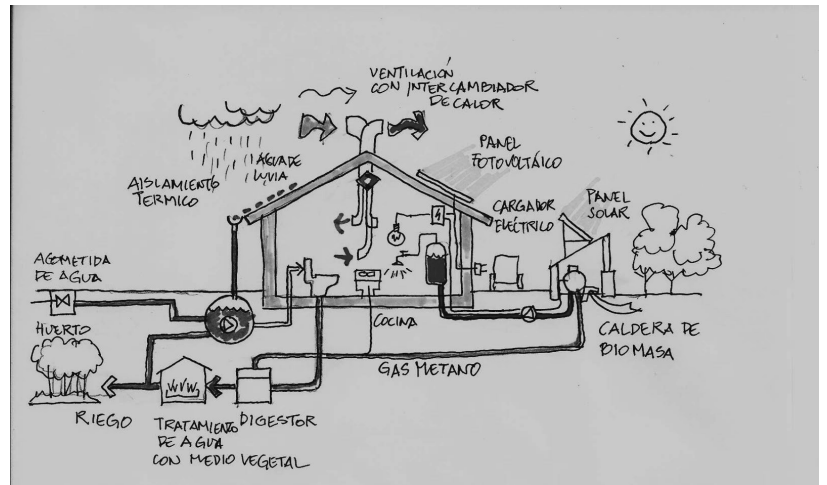 VENTILACIÓN
CON INTERCAMBIADOR
DE CALOR
PANEL
FOTOVOLTÁICO
AGUA DE
LLUVIA
AISLAMIENTO
TERMICO
CARGADOR
ELÉCTRICO
PANEL
SOLAR
ACOMETIDA
DE AGUA
HUERTO
COCINA
CALDERA DE
BIOMASA
GAS METANO
RIEGO
TRATAMIENTO
DE AGUA
CON MEDIO VEGETAL
DIGESTOR